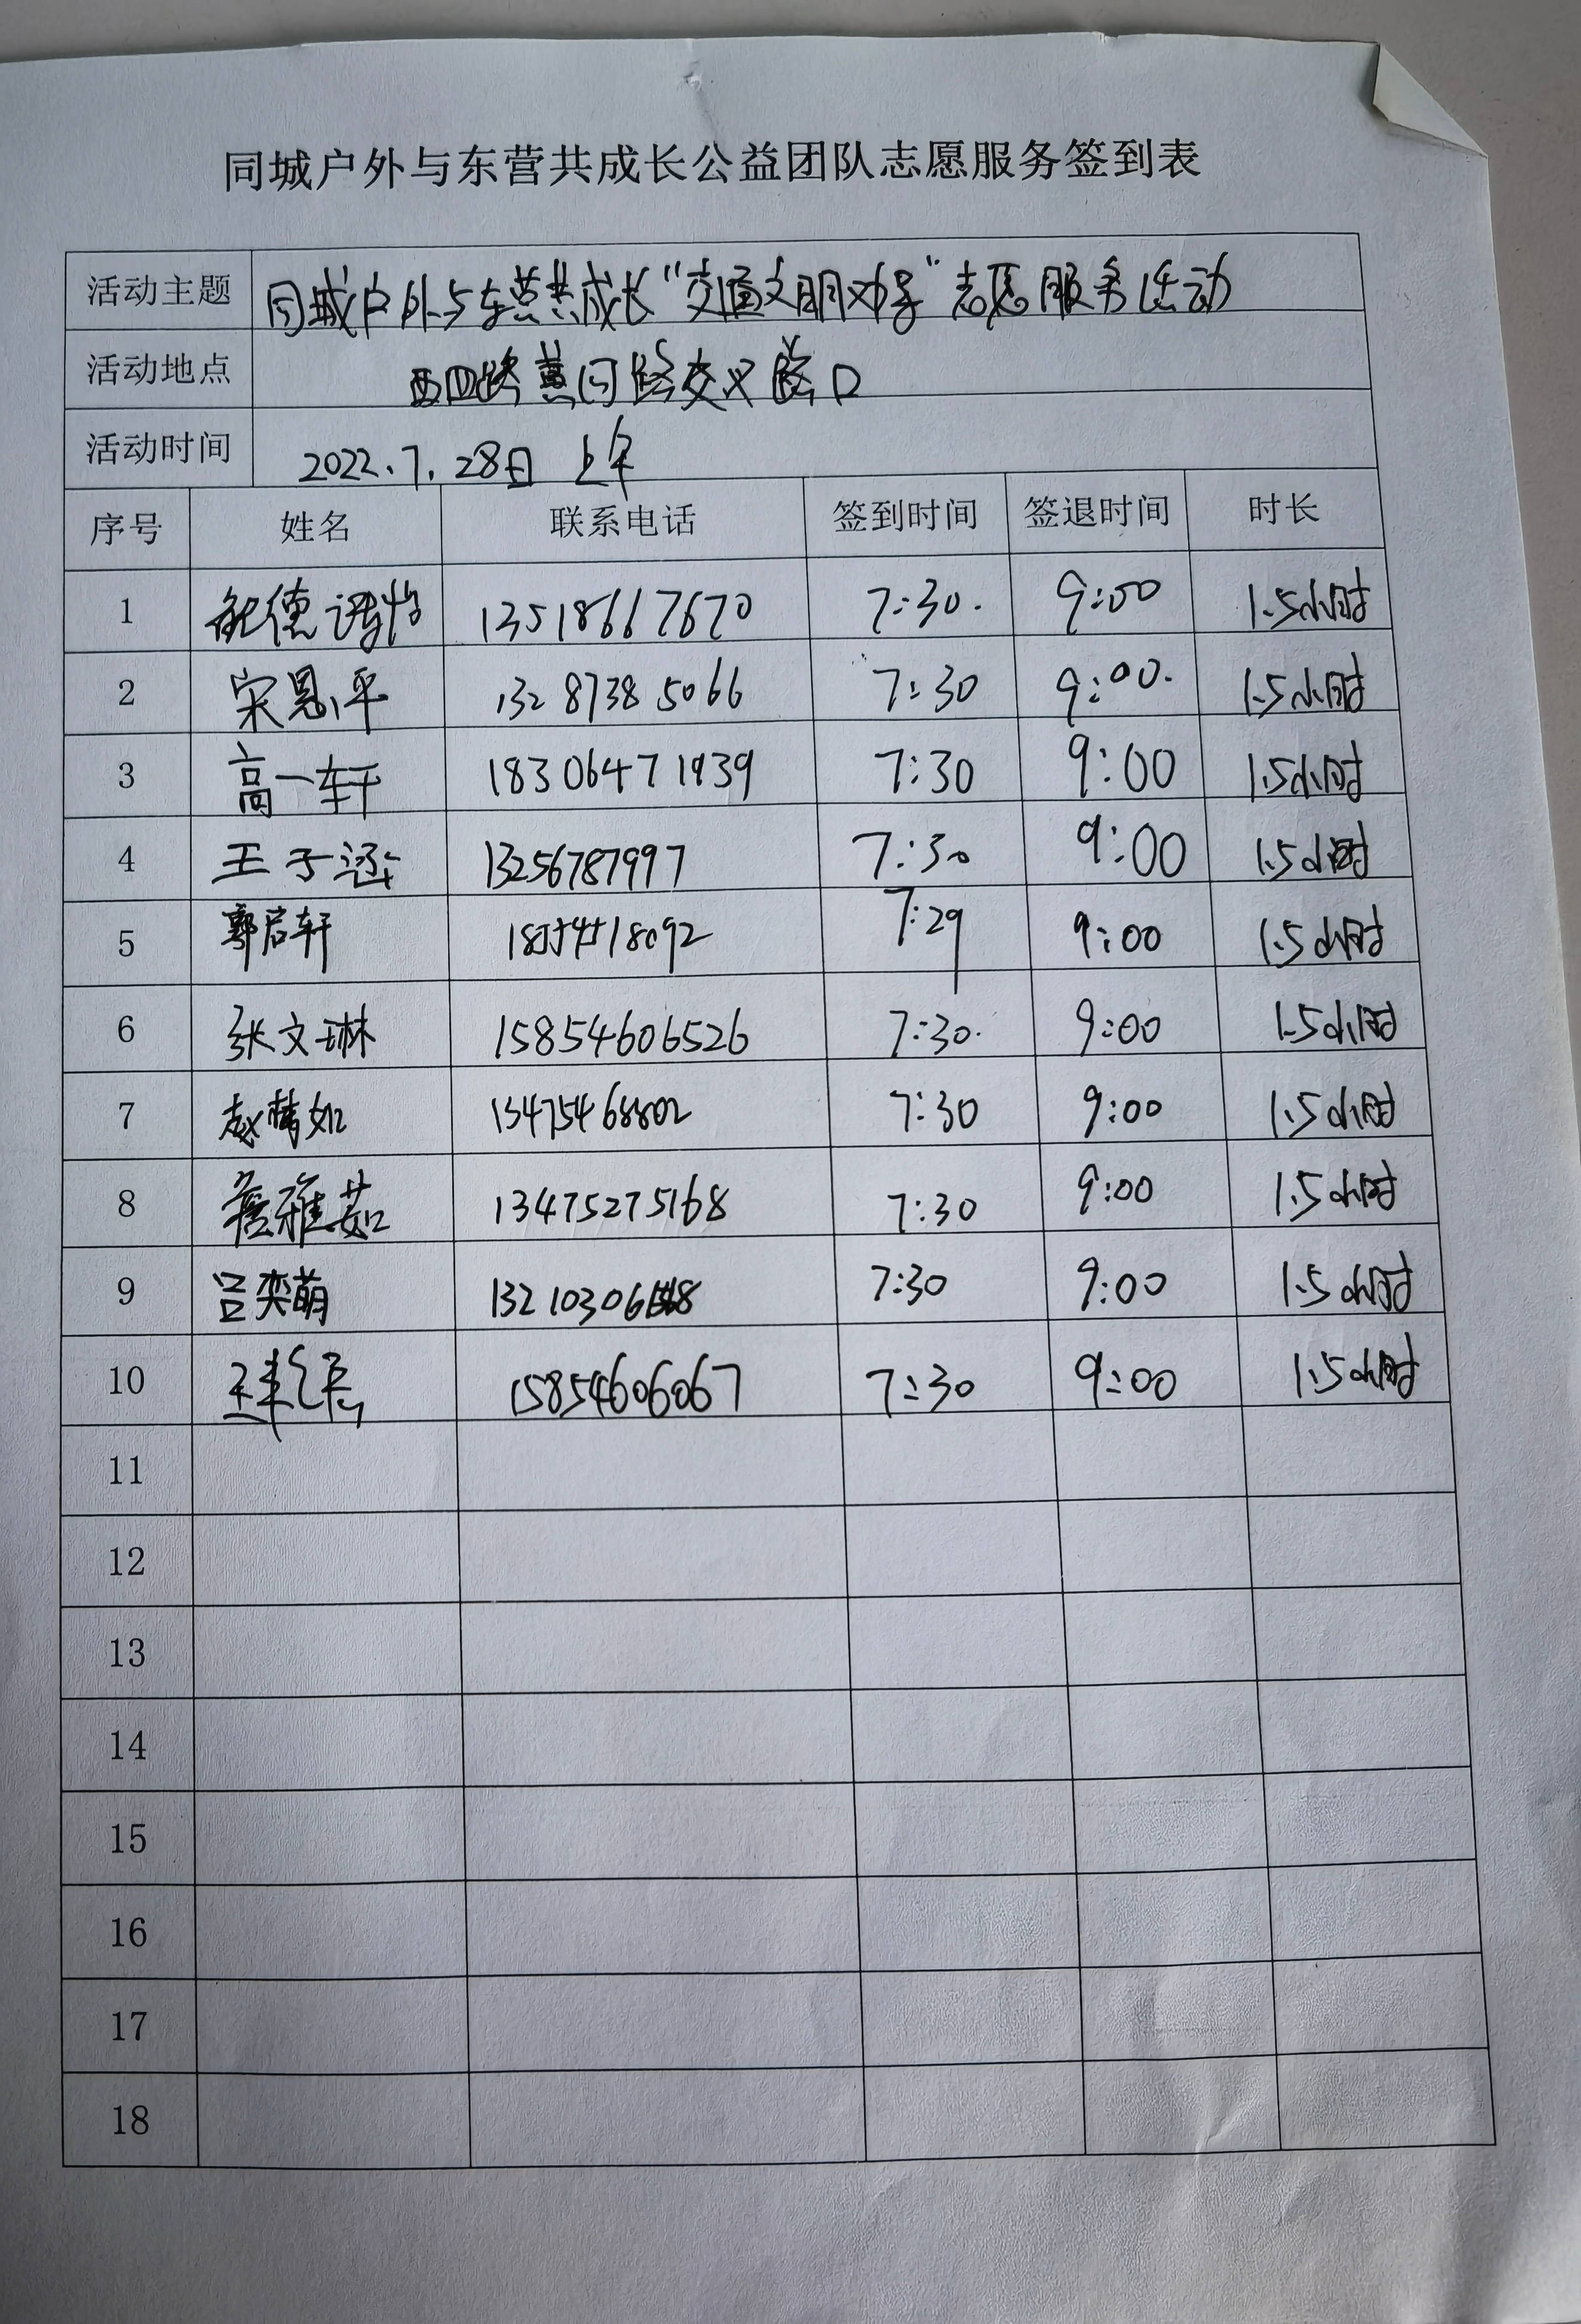 同城户外与东营共成长公益团队志愿服务签到表
活动主题 同城户外与东营共成长“交通文明劝导”志愿服务活动
活动地点 西四路黄河路交叉路口
活动时间 2022.7.28日 上午
序号 姓名 联系电话 签到时间 签退时间 时长
1 13518667670 7:30. 9:00 1.5小时
2 宋恩平 13287385066 7:30 9:00. 1.5小时
3 高一轩 18306471939 7:30 9:00 1.5小时
4 王子涵 13256787997 7:30 9:00 1.5小时
5 郭启轩 7:29 9:00 1.5小时
6 张文琳 15854606526 7:30. 9:00 1.5小时
7 赵梦如 13475468802 7:30 9:00 1.5小时
8 詹雅茹 13475275168 7:30 9:00 1.5小时
9 吕奕萌 7:30 9:00 1.5小时
10 15854606067 7:30 9:00 1.5小时
11
12
13
14
15
16
17
18